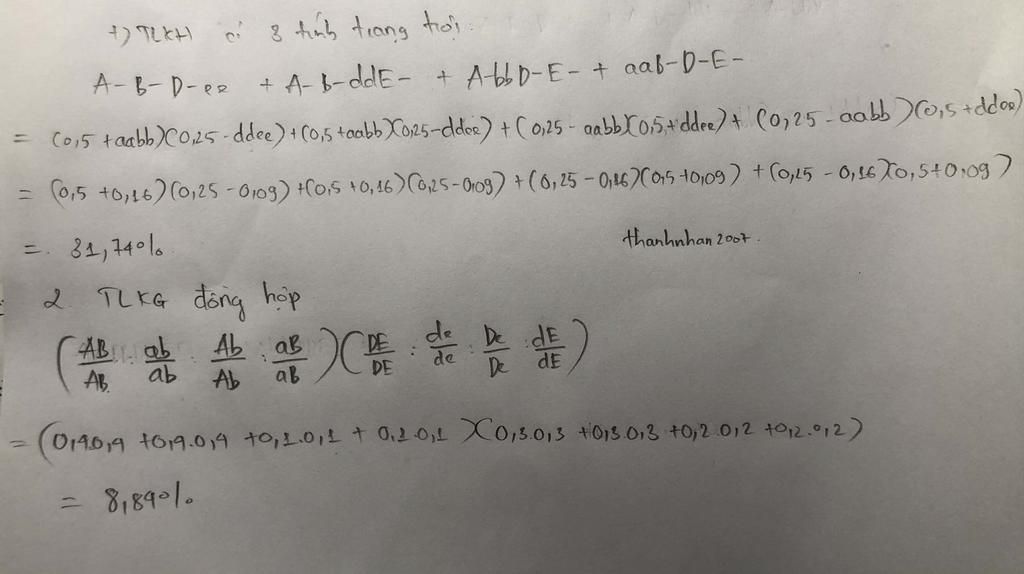 +) TLKH có 3 tính trạng trội:
A-B-D-ee + A-B-ddE- + A-bbD-E- + aaB-D-E-
= (0,5 + aabb)(0,25 - ddee) + (0,5 + aabb)(0,25 - ddee) + (0,25 - aabb)(0,5 + ddee) + (0,25 - aabb)(0,5 + ddee)
= (0,5 + 0,16)(0,25 - 0,09) + (0,5 + 0,16)(0,25 - 0,09) + (0,25 - 0,16)(0,5 + 0,09) + (0,25 - 0,16)(0,5 + 0,09)
= 31,74%
thanhnhan2007.
2. TLKG đồng hợp
(AB/AB : ab/ab : Ab/Ab : aB/aB)(DE/DE : de/de : De/De : dE/dE)
= (0,4.0,4 + 0,4.0,4 + 0,1.0,1 + 0,1.0,1)(0,3.0,3 + 0,3.0,3 + 0,2.0,2 + 0,2.0,2)
= 8,84%